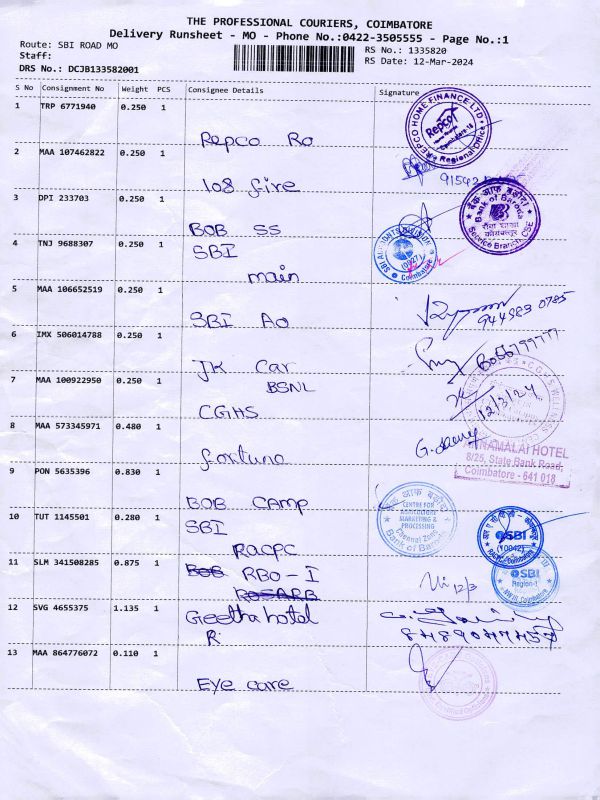 THE PROFESSIONAL COURIERS, COIMBATORE
Delivery Runsheet - MO - Phone No.:0422-3505555 - Page No.:1
Route: SBI ROAD MO
RS No.: 1335820
Staff:
RS Date: 12-Mar-2024
DRS No.: DCJB133582001
S No Consignment No Weight PCS Consignee Details Signature
1 TRP 6771940 0.250 1
REPCO HOME FINANCE LTD
Repco
Regional Office
Repco Ro
2 MAA 107462822 0.250 1
108 fire
3 DPI 233703 0.250 1
बैंक ऑफ़ बड़ौदा
Bank of Baroda
Service Branch, CSE
BOB SS
4 TNJ 9688307 0.250 1
SBI
main
Coimbatore
5 MAA 106652519 0.250 1
SBI AO
944383 0785
6 IMX 506014788 0.250 1
JK Car
BSNL
7 MAA 100922950 0.250 1
CGHS
12/3/24
8 MAA 573345971 0.480 1
fortuna
NAMALAI HOTEL
8/25, State Bank Road,
Coimbatore - 641 018
9 PON 5635396 0.830 1
BOB CAMP
CENTRE FOR
AGRICULTURE
MARKETING &
PROCESSING
Chennai Zone
Bank of Baroda
10 TUT 1145501 0.280 1
SBI
RACPC
SBI
11 SLM 341508285 0.875 1
BOB RBO-I
12/3
SBI
Region-1
12 SVG 4655375 1.135 1
Geetha hotel
R
13 MAA 864776072 0.110 1
Eye care